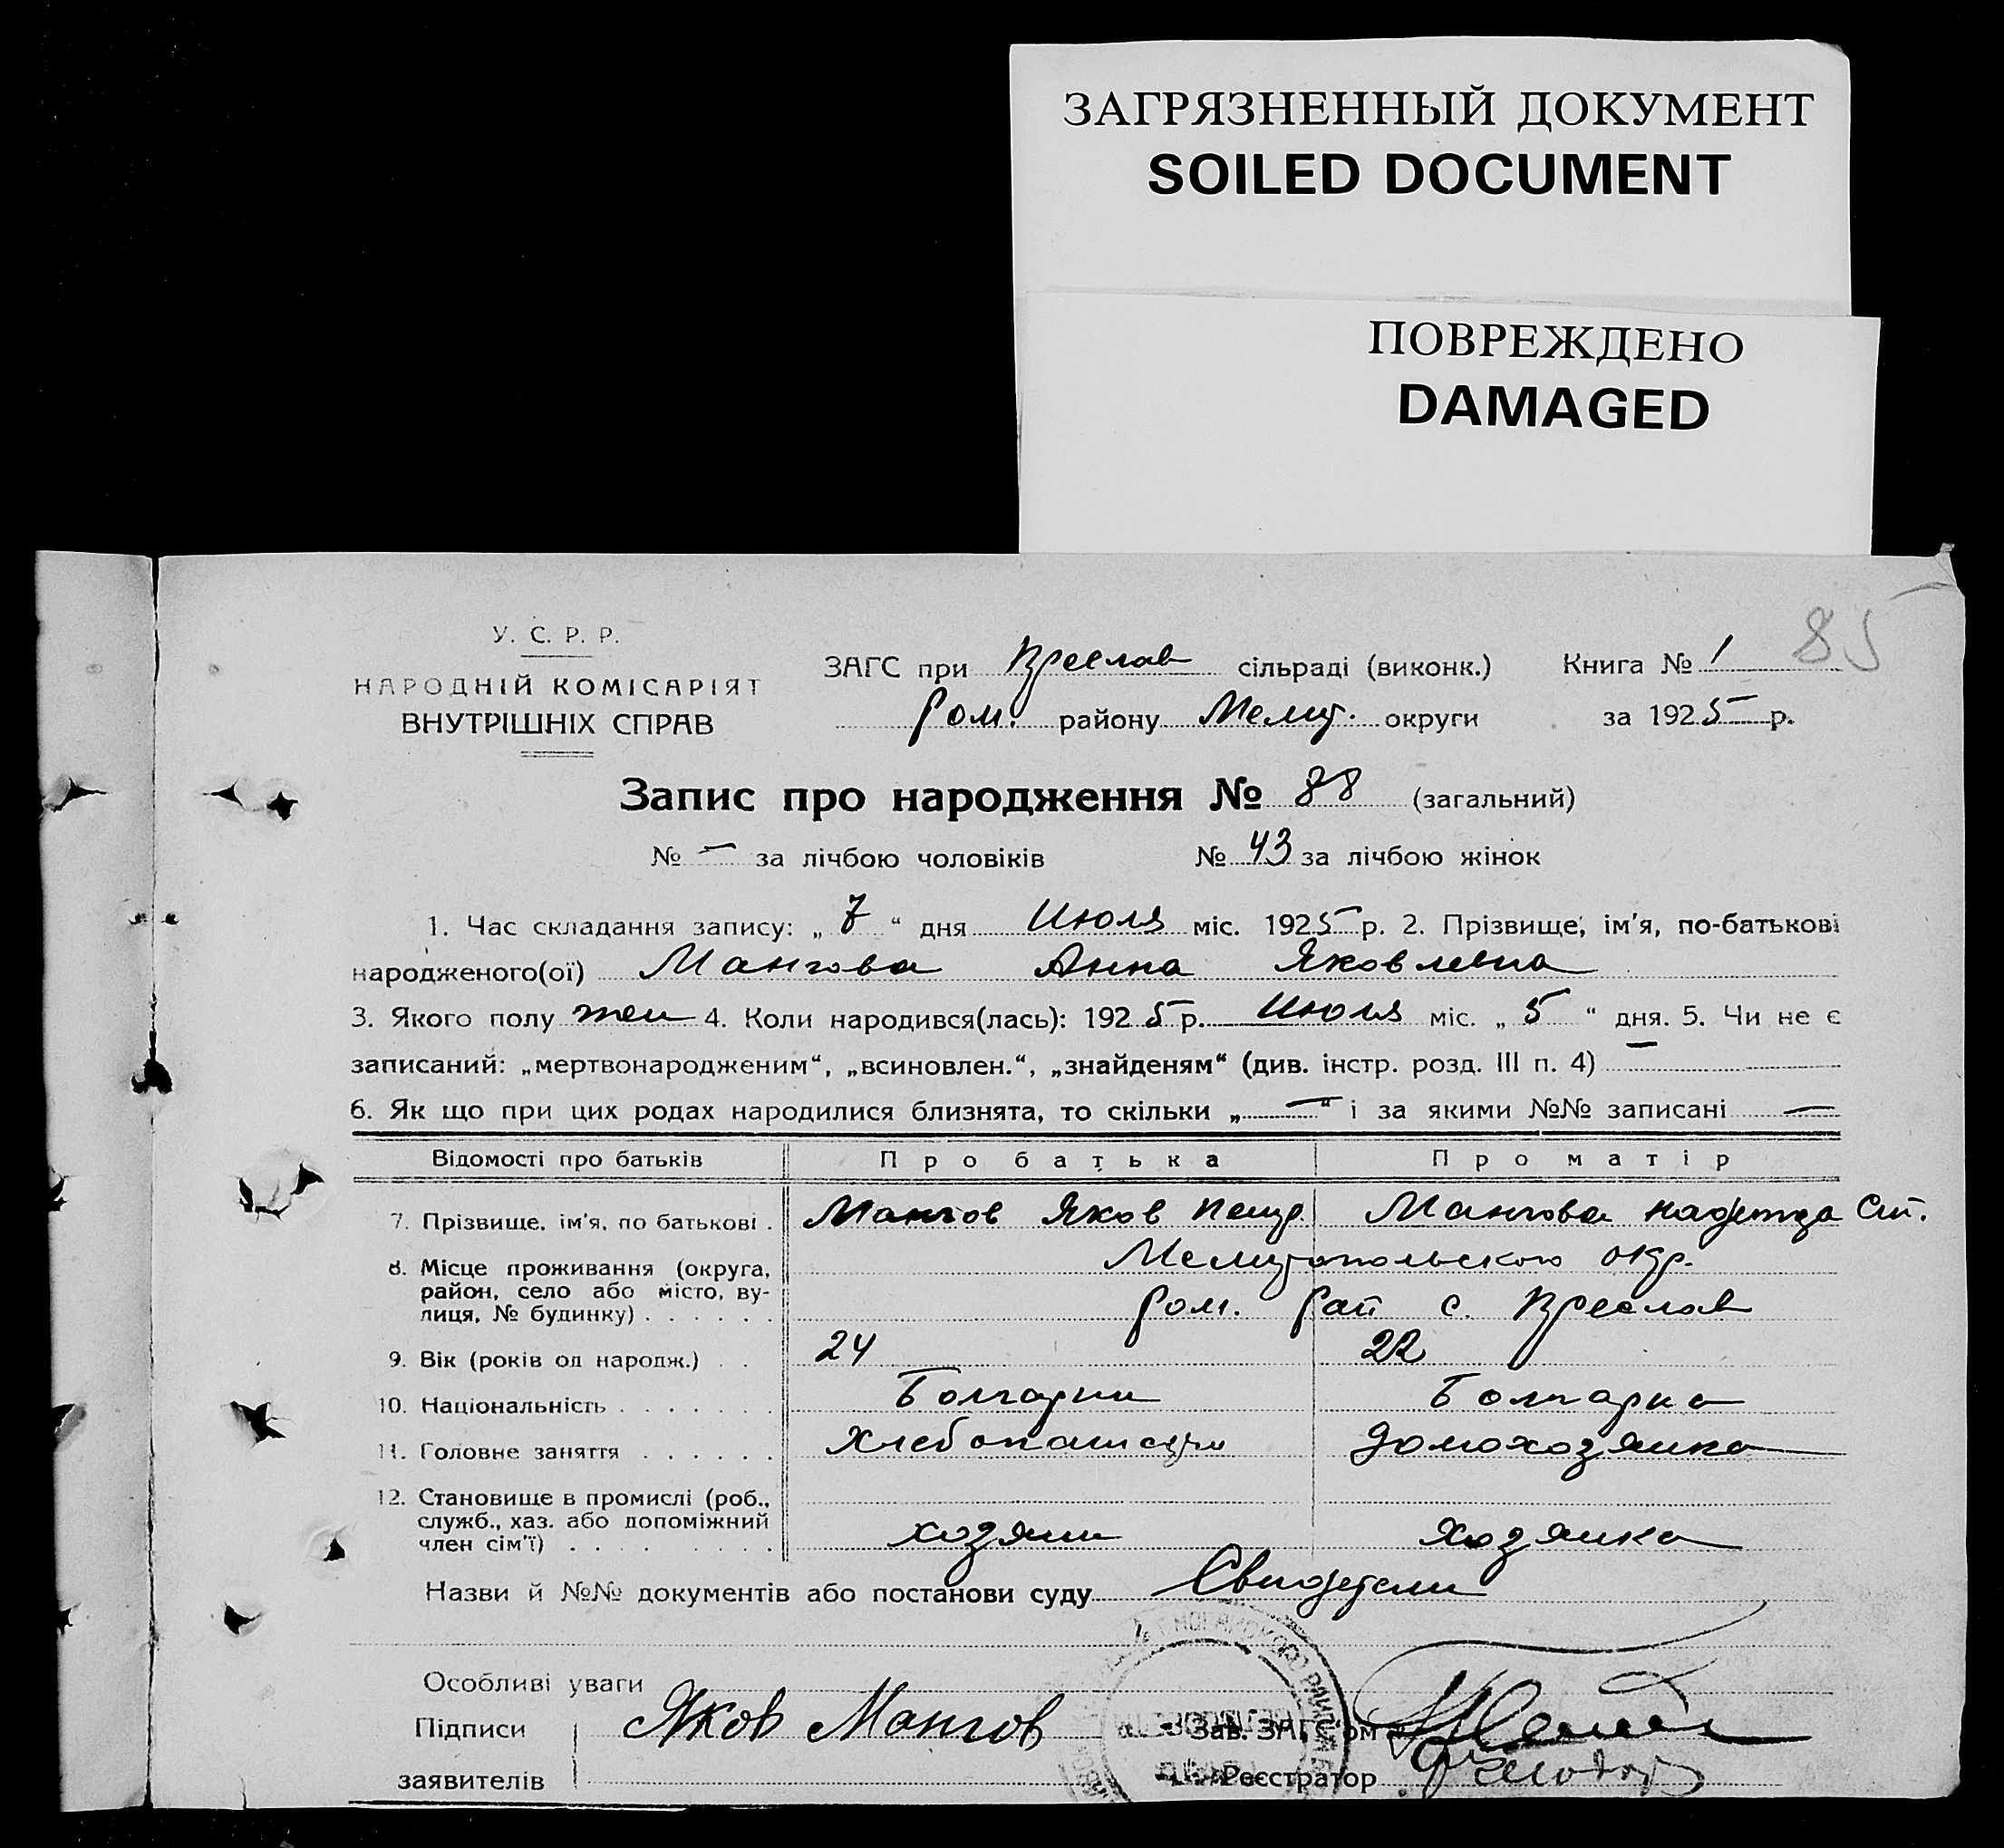 ЗАГРЯЗНЕННЫЙ ДОКУМЕНТ
SOILED DOCUMENT
ПОВРЕЖДЕНО
DAMAGED
85
У. С. Р. Р.
НАРОДНІЙ КОМІСАРІЯТ
ВНУТРІШНІХ СПРАВ
ЗАГС при Преслав сільраді (виконк.) Книга № 1
Ром. району Мелит. округи за 1925 р.
Запис про народження № 88 (загальний)
№ – за лічбою чоловіків № 43 за лічбою жінок
1. Час складання запису: „ 7 “ дня Июля міс. 1925 р. 2. Прізвище, ім'я, по-батькові
народженого(ої) Мангова Анна Яковлевна
3. Якого полу жен 4. Коли народився(лась): 1925 р. Июля міс. „ 5 “ дня. 5. Чи не є
записаний: „мертвонародженим“, „всиновлен.“, „знайденям“ (див. інстр. розд. III п. 4) –
6. Як що при цих родах народилися близнята, то скільки „ – “ і за якими №№ записані –
Відомості про батьків Про батька Про матір
7. Прізвище, ім'я, по батькові . Мангов Яков Петр. Мангова Надежда Ст.
8. Місце проживання (округа, район, село або місто, вулиця, № будинку) . . . . . . Мелитопольского окр.
Ром. рай с. Преслав
9. Вік (років од народж.) . . 24 22
10. Національність . . . . . . . Болгарин Болгарка
11. Головне заняття . . . . . . Хлебопашец Домохозяйка
12. Становище в промислі (роб., служб., хаз. або допоміжний член сім'ї) . . . . . . . . хозяин хозяйка
Назви й №№ документів або постанови суду Свидетели
Особливі уваги
Підписи Яков Мангов Зав. ЗАГС'ом
заявителів Реєстратор